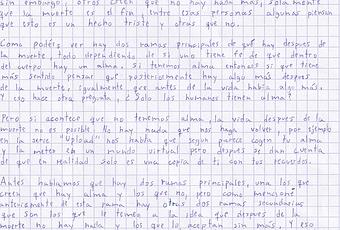 sin embargo, otros creen que no hay nada más, solamente
que la muerte es el fin, entre esas personas algunas piensan
que esto es un hecho triste y otras que no.
Como podéis ver hay dos ramas principales de qué hay después de
la muerte, todo dependiendo si uno tiene fe de que dentro
del cuerpo hay un alma. Si tenemos alma entonces si que tiene
más sentido pensar que posteriormente hay algo más después
de la muerte, igualmente que antes de la vida había algo más.
Y eso hace otra pregunta, ¿Solo los humanos tienen alma?
Pero si acontece que no tenemos alma, la vida después de la
muerte no es posible. No hay nada que nos haga volver, por ejemplo
en la serie "Upload" nos habla que según parece cogen tu alma
y la meten en un mundo virtual pero después se dan cuenta
de que en realidad solo es una copia de ti con tus recuerdos.
Antes hablamos que hay dos ramas principales, una los que
creen que hay alma y los que no, pero como mencioné
anteriormente de esta rama hay otras dos ramas secundarias
que son los que le temen a la idea que después de la
muerte no hay nada y los que lo aceptan sin más, Y eso